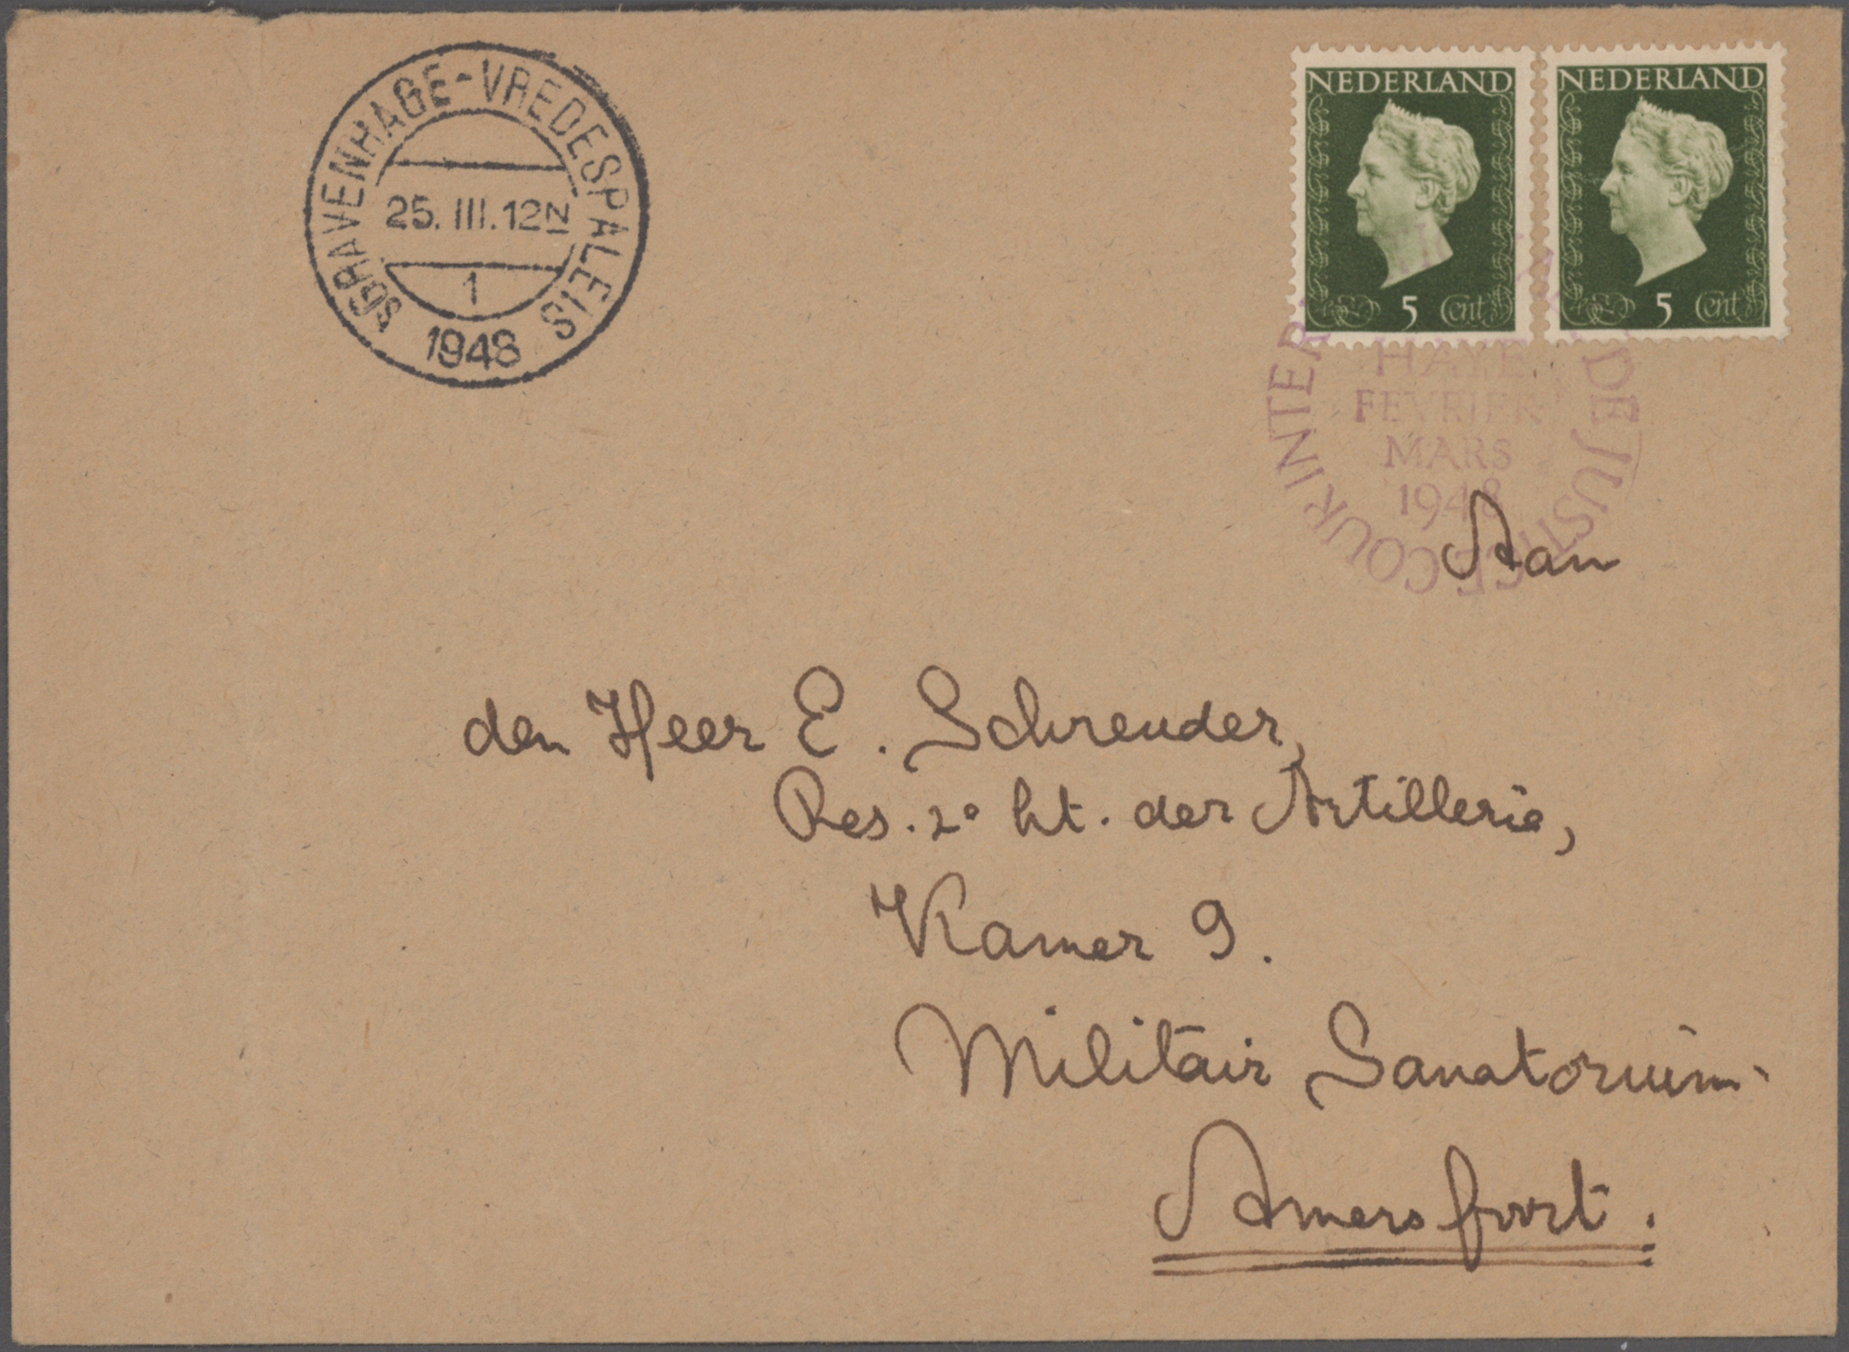 SGRAVENHAGE-VREDESPALEIS
25. III. 12N
1
1948
NEDERLAND
5 Cent
NEDERLAND
5 Cent
COUR INTER DE JUSTICE
HAYE
FEVRIER
MARS
1948
Aan
den Heer E. Schreuder,
Res. 2e Lt. der Artillerie,
Kamer 9.
Militair Sanatorium
Amersfoort.